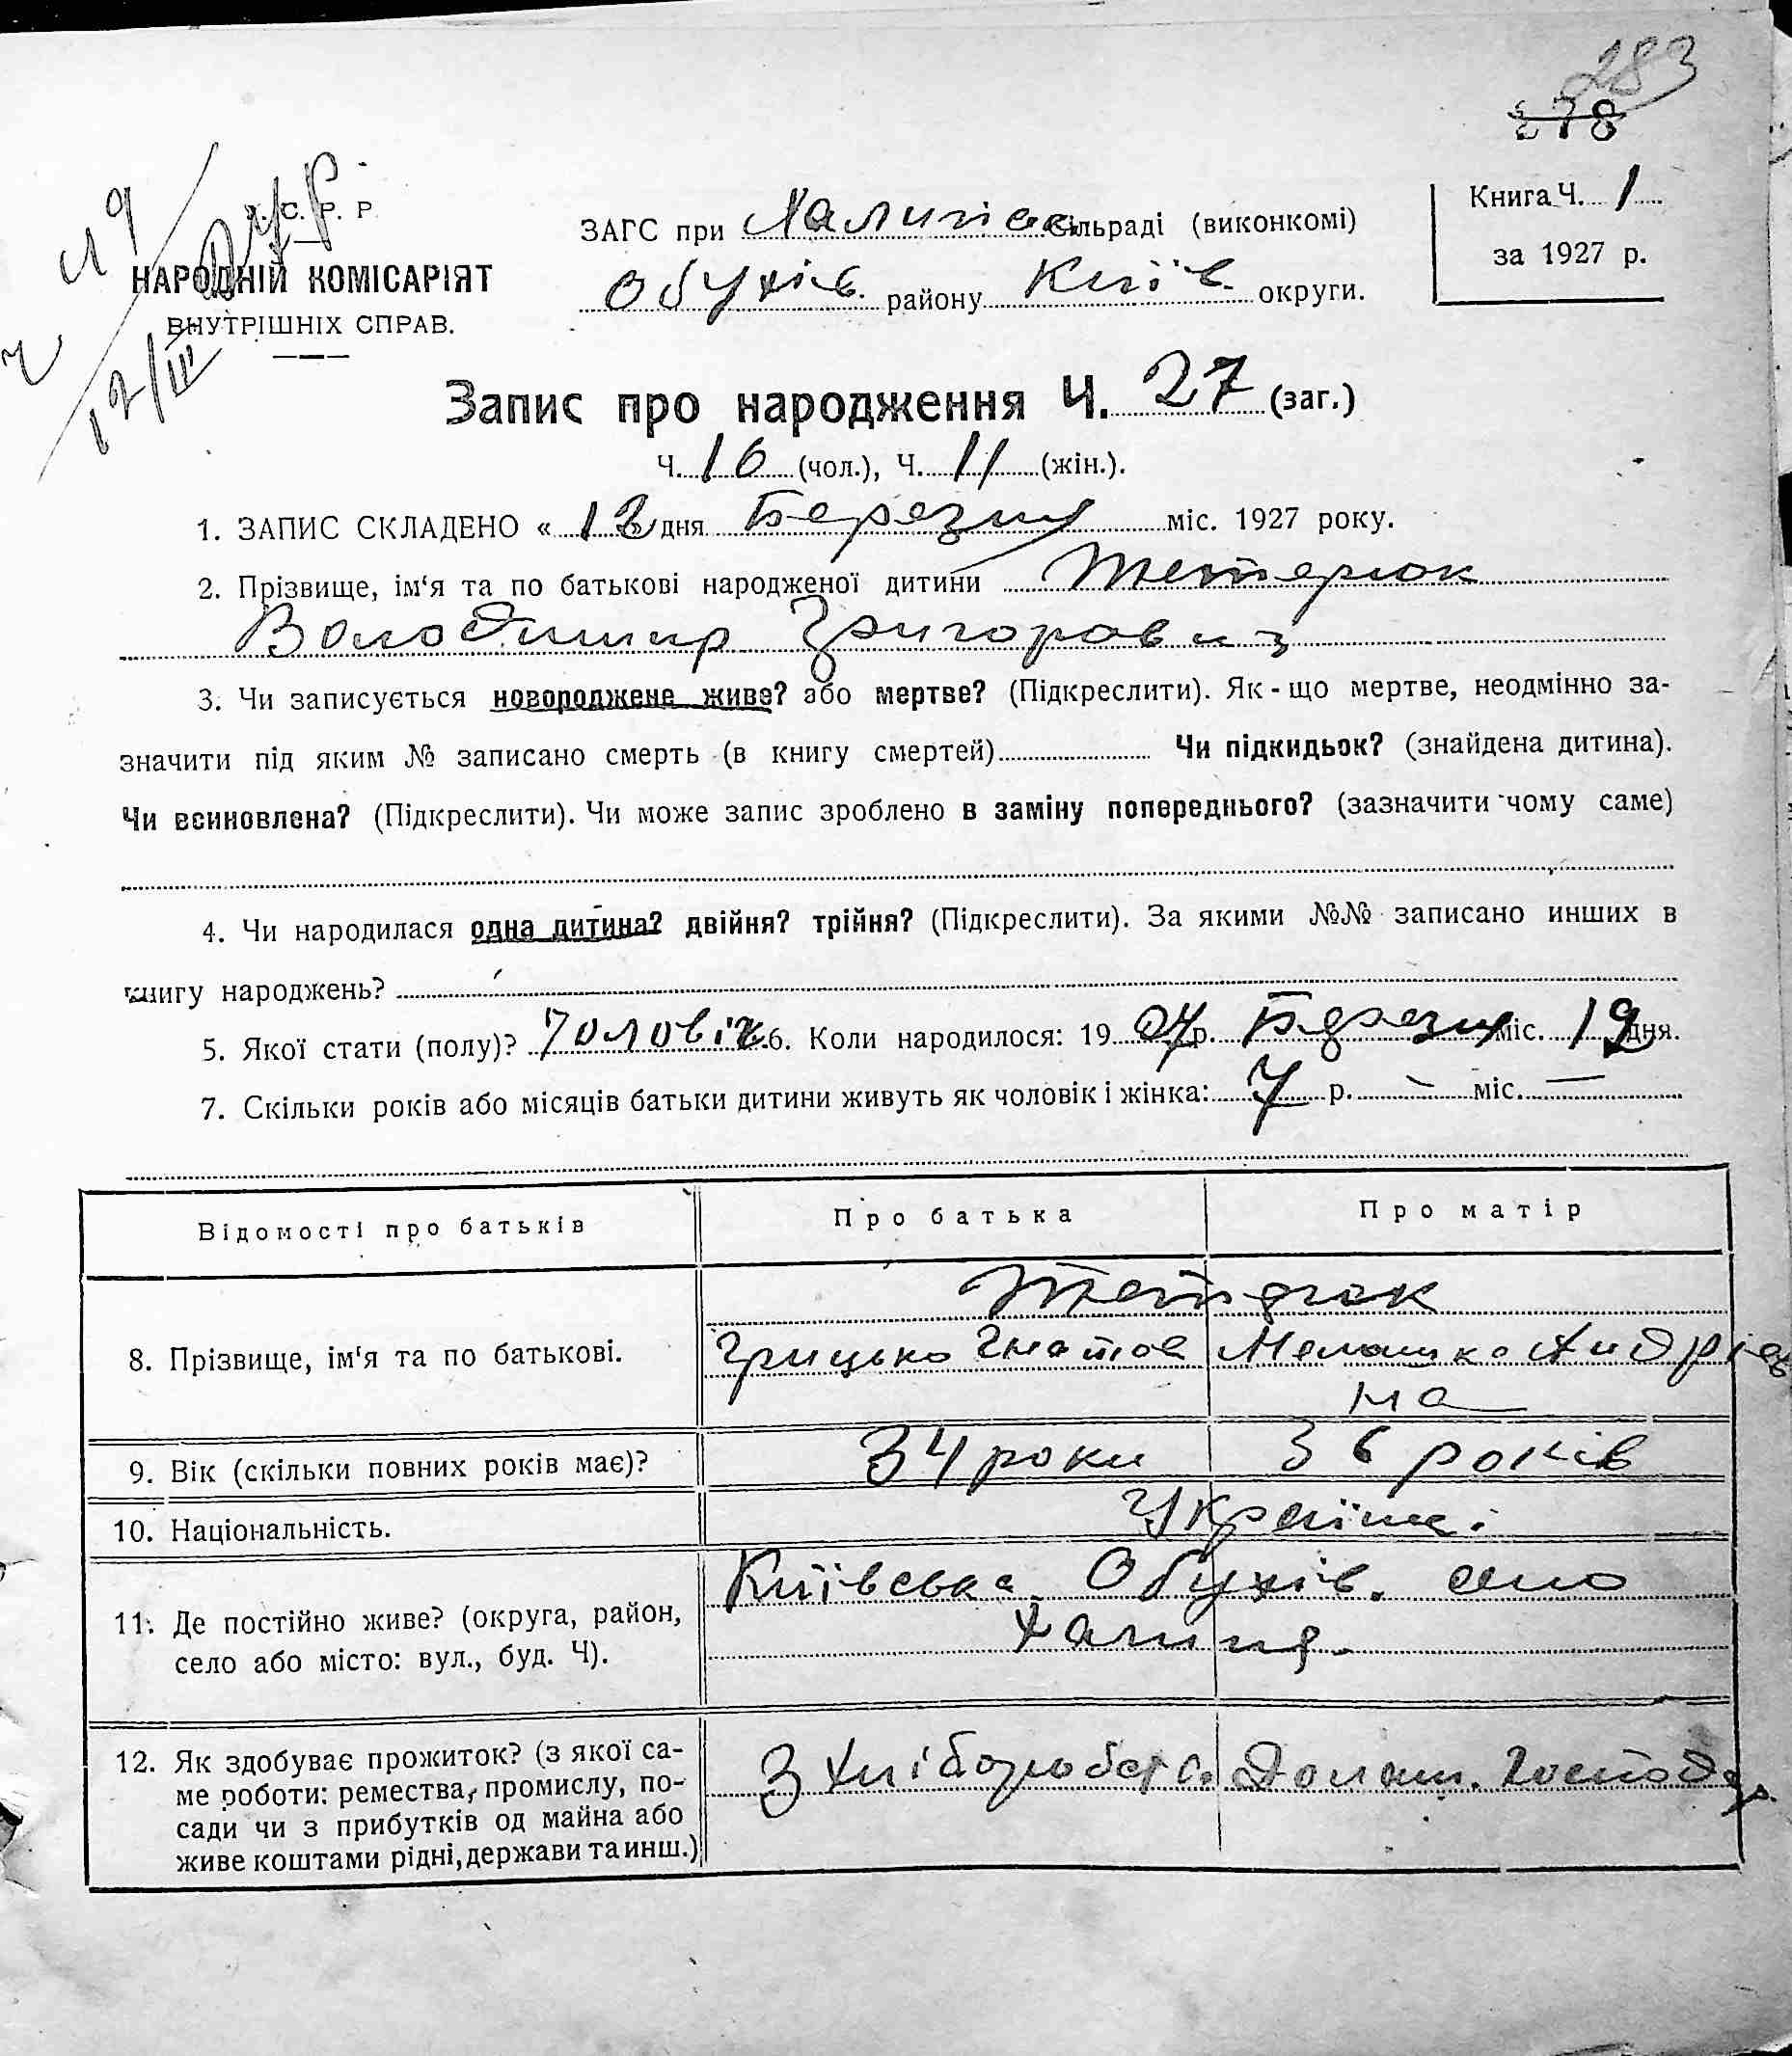 283
278
У. С. Р. Р.
НАРОДНІЙ КОМІСАРІЯТ
ВНУТРІШНІХ СПРАВ.
12/III
ЗАГС при Халипіев. сільраді (виконкомі)
Обухів. району Київ. округи.
Книга Ч. 1
за 1927 р.
Запис про народження Ч. 27 (заг.)
Ч. 16 (чол.), Ч. 11 (жін.).
1. ЗАПИС СКЛАДЕНО « 12 » дня Березня міс. 1927 року.
2. Прізвище, ім‘я та по батькові народженої дитини Тетерюк
Володимир Григорович
3. Чи записується новороджене живе? або мертве? (Підкреслити). Як-що мертве, неодмінно за-
значити під яким № записано смерть (в книгу смертей) Чи підкидьок? (знайдена дитина).
Чи всиновлена? (Підкреслити). Чи може запис зроблено в заміну попереднього? (зазначити чому саме)
4. Чи народилася одна дитина? двійня? трійня? (Підкреслити). За якими №№ записано инших в
книгу народжень?
5. Якої стати (полу)? Чоловіч. 6. Коли народилося: 1927 р. Березня міс. 12 дня.
7. Скільки років або місяців батьки дитини живуть як чоловік і жінка: 7 р. — міс. —
Відомості про батьків Про батька Про матір
8. Прізвище, ім‘я та по батькові. Тетерюк
Грицько Гнатов Мелашка Андрієв
на
9. Вік (скільки повних років має)? 34 роки 36 років
10. Національність. Українці
11. Де постійно живе? (округа, район,
село або місто: вул., буд. Ч).
Київська Обухів. село
Халипя.
12. Як здобуває прожиток? (з якої са-
ме роботи: ремества, промислу, по-
сади чи з прибутків од майна або
живе коштами рідні, держави та инш.)
З хліборобства Домаш. Господар.